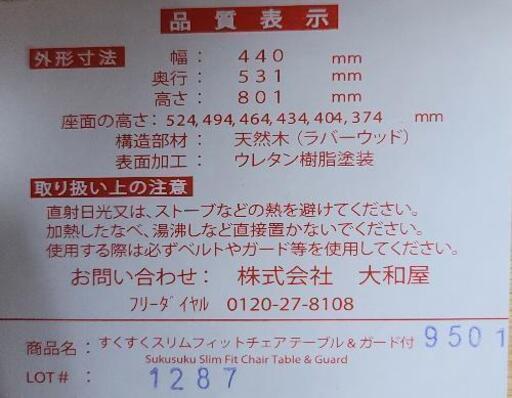 品質表示
外形寸法 幅： 440 mm
奥行： 531 mm
高さ： 801 mm
座面の高さ： 524, 494, 464, 434, 404, 374 mm
構造部材： 天然木（ラバーウッド）
表面加工： ウレタン樹脂塗装
取り扱い上の注意
直射日光又は、ストーブなどの熱を避けてください。
加熱したなべ、湯沸しなど直接置かないでください。
使用する際は必ずベルトやガード等を使用してください。
お問い合わせ： 株式会社 大和屋
ﾌﾘｰﾀﾞｲﾔﾙ 0120-27-8108
商品名： すくすくスリムフィットチェア テーブル & ガード付 9501
Sukusuku Slim Fit Chair Table & Guard
LOT #： 1287